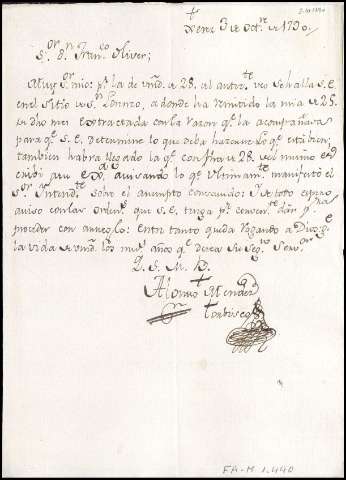 Xerez 3 de Oct.re de 1790.
S.or D.n Fran.co Oliver;
Muy S.or mio: p.r la de vmd. de 28. al anter.te veo se halla S.E.
en el Sitio de S.n Lorenzo, a donde ha remitido la mia de 25.
en dho mes extractada con la razon q.e la acompañava
para q.e S.E. determine lo que deba hacerse lo q.e está bien;
tambien habra llegado la q.e con fha de 28. del mismo
dirijí a su Ex.a avisando lo q.e ultimam.te manifestó el
S.or Intend.te sobre el assumpto consavido: y de todo espero
aviso con las orden.s que S.E. tenga p.r conven.te dar p.a
proceder con arreglo: Entre tanto quedo rogando a Dios g.e
la vida de vmd. los mu.s años q.e desea su seg.to Serv.or
Q. S. M. B.
Alonso Mendez
FA-M 1.440